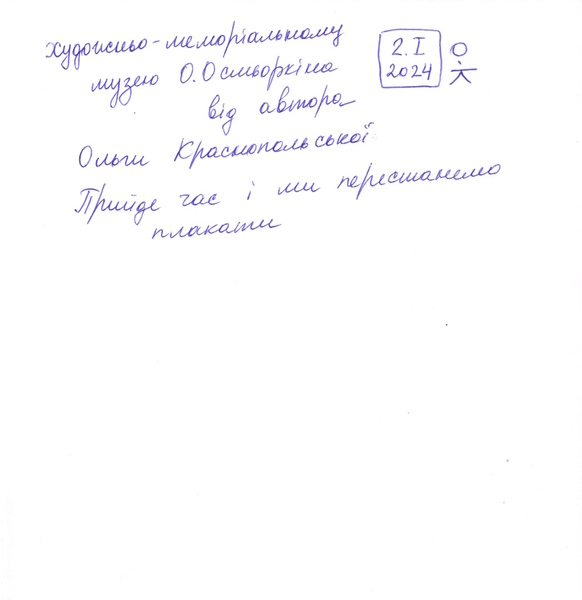 художньо-меморіальному
музею О.Осмьоркіна
від автора
Ольги Краснопольської
Прийде час і ми перестанемо
плакати
2.I
2024